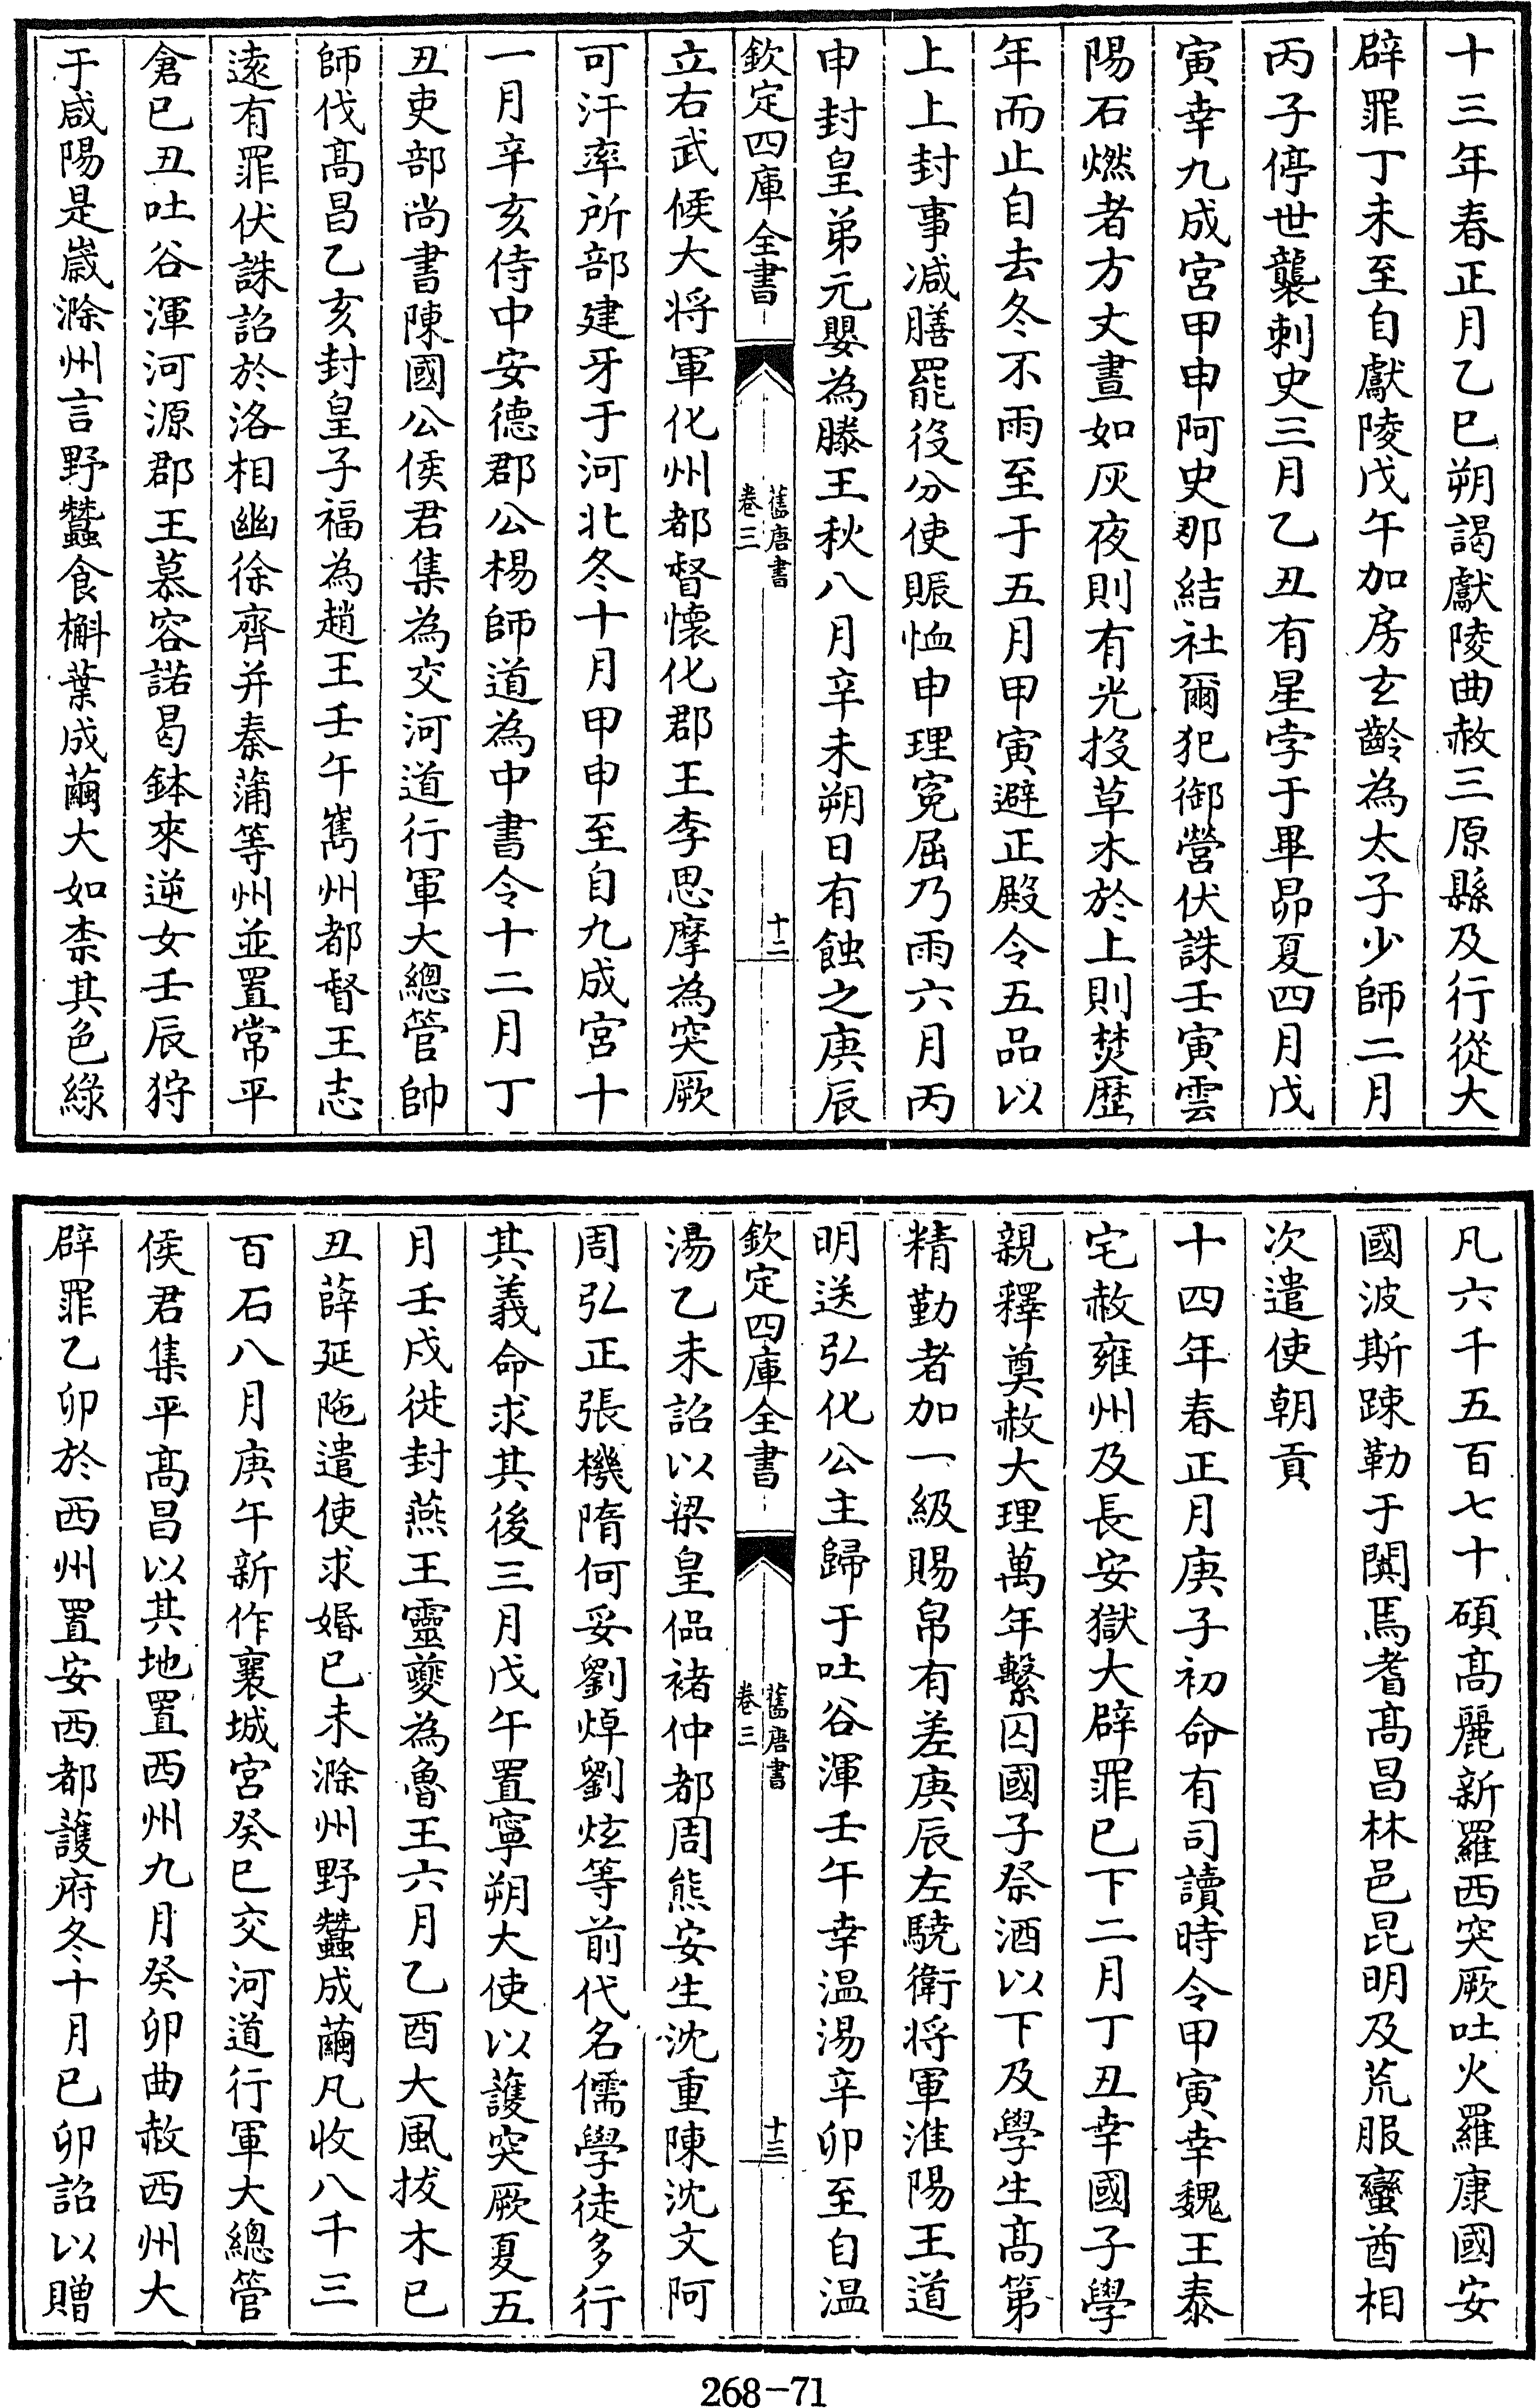 十三年春正月乙巳朔謁獻陵曲赦三原縣及行從大
辟罪丁未至自獻陵戊午加房玄齡為太子少師二月
丙子停世襲刺史三月乙丑有星孛于畢昴夏四月戊
寅幸九成宮甲申阿史那結社爾犯御營伏誅壬寅雲
陽石燃者方丈晝如灰夜則有光投草木於上則焚歴
年而止自去冬不雨至于五月甲寅避正殿令五品以
上上封事减膳罷役分使賑恤申理寃屈乃雨六月丙
申封皇弟元嬰為滕王秋八月辛未朔日有蝕之庚辰
欽定四庫全書
舊唐書
卷三
十二
立右武候大將軍化州都督懷化郡王李思摩為突厥
可汗率所部建牙于河北冬十月甲申至自九成宮十
一月辛亥侍中安德郡公楊師道為中書令十二月丁
丑吏部尚書陳國公侯君集為交河道行軍大總管帥
師伐髙昌乙亥封皇子福為趙王壬午雟州都督王志
逺有罪伏誅詔於洛相幽徐齊并秦蒲等州並置常平
倉巳丑吐谷渾河源郡王慕容諾曷鉢來逆女壬辰狩
于咸陽是嵗滁州言野蠶食槲葉成繭大如柰其色綠
凡六千五百七十碩髙麗新羅西突厥吐火羅康國安
國波斯疎勒于闐焉耆髙昌林邑昆明及荒服蠻酋相
次遣使朝貢
十四年春正月庚子初命有司讀時令甲寅幸魏王泰
宅赦雍州及長安獄大辟罪已下二月丁丑幸國子學
親釋奠赦大理萬年繫囚國子祭酒以下及學生髙第
精勤者加一級賜帛有差庚辰左驍衛將軍淮陽王道
明送弘化公主歸于吐谷渾壬午幸温湯辛卯至自温
欽定四庫全書
舊唐書
卷三
十三
湯乙未詔以梁皇侃褚仲都周熊安生沈重陳沈文阿
周弘正張機隋何妥劉焯劉炫等前代名儒學徒多行
其義命求其後三月戊午置寧朔大使以護突厥夏五
月壬戍徙封燕王靈夔為魯王六月乙酉大風拔木已
丑薛延陁遣使求婚已未滁州野蠶成繭凡收八千三
百石八月庚午新作襄城宮癸巳交河道行軍大總管
侯君集平髙昌以其地置西州九月癸卯曲赦西州大
辟罪乙卯於西州置安西都護府冬十月已卯詔以贈
268-71